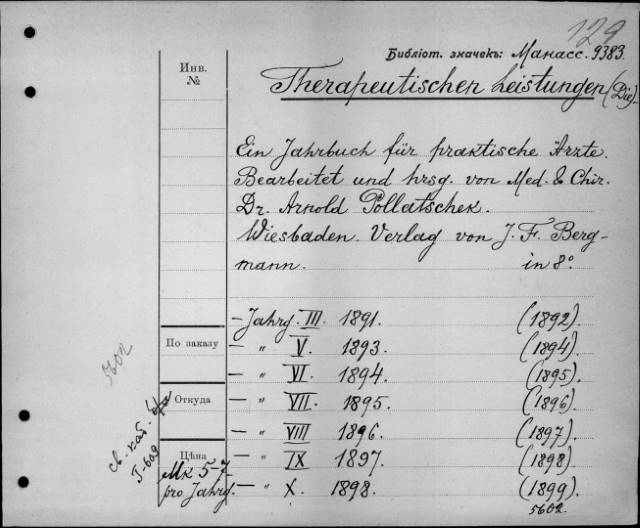 129
Библіот. значекъ: Манасс. 9383.
Инв.
№
Therapeutischen Leistungen (Die).
Ein Jahrbuch für praktische Ärzte.
Bearbeitet und hrsg. von Med. & Chir.
Dr. Arnold Pollatschek.
Wiesbaden. Verlag von J. F. Berg-
mann. in 8°.
— Jahrg. III. 1891. (1892).
По заказу
— " V. 1893. (1894).
— " VI. 1894. (1895).
Откуда
— " VII. 1895. (1896).
— " VIII 1896. (1897).
Цѣна
— " IX 1897. (1898).
Мк 5-7
pro Jahrg. — " X. 1898. (1899).
5602.
5602
св. каб.
Т-609